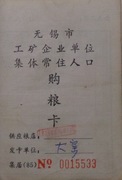 无锡市
工矿企业单位
集体常住人口
购粮卡
供应粮店：
发卡单位：
集居(85) № 0015533